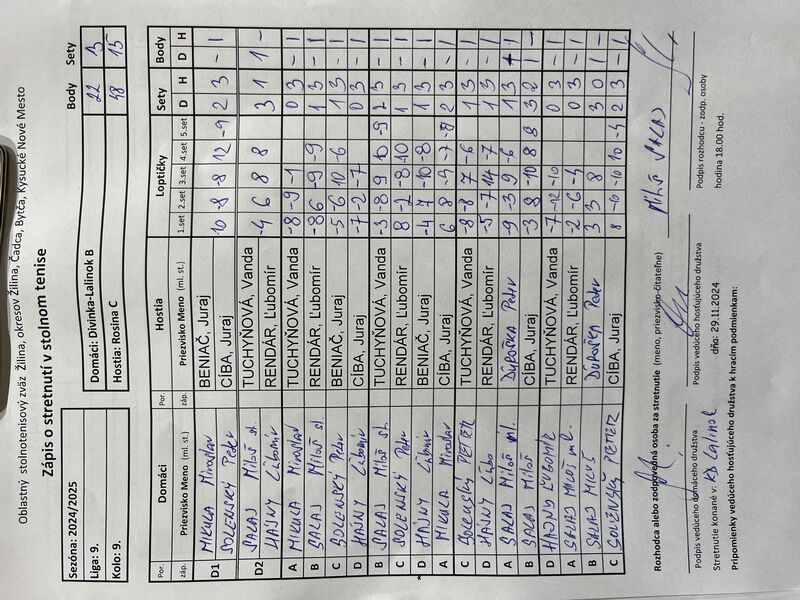 Oblastný stolnotenisový zväz Žilina, okresov Žilina, Čadca, Bytča, Kysucké Nové Mesto
Zápis o stretnutí v stolnom tenise
Sezóna: 2024/2025 Body Sety
Liga: 9. Domáci: Divinka-Lalinok B 22 3
Kolo: 9. Hostia: Rosina C 48 15
Por. Domáci Por. Hostia Loptičky Sety Body
záp. Priezvisko Meno (ml. st.) záp. Priezvisko Meno (ml. st.) 1.set 2.set 3.set 4.set 5.set D H D H
D1 MIKULA Miroslav BENIAČ, Juraj
SOLENSKÝ Peter CÍBA, Juraj 10 8 -8 12 -9 2 3 - 1
D2 SALAJ Miloš st. TUCHYŇOVÁ, Vanda
HAJNÝ Ľubomír RENDÁR, Ľubomír -4 6 8 8 3 1 1 -
A MIKULA Miroslav TUCHYŇOVÁ, Vanda -8 -9 -1 0 3 - 1
B SALAJ Miloš st. RENDÁR, Ľubomír -8 6 -9 -9 1 3 - 1
C SOLENSKÝ Peter BENIAČ, Juraj -5 -6 10 -6 1 3 - 1
D HAJNÝ Ľubomír CÍBA, Juraj -7 -2 -7 0 3 - 1
B SALAJ Miloš st. TUCHYŇOVÁ, Vanda -3 -8 9 10 -9 2 3 - 1
C SOLENSKÝ Petr RENDÁR, Ľubomír 8 -2 -8 -10 1 3 - 1
* D HAJNÝ Ľubomír BENIAČ, Juraj -4 7 -10 -8 1 3 - 1
A MIKULA Miroslav CÍBA, Juraj 6 8 -4 -7 -8 2 3 - 1
C SOLENSKÝ PETER TUCHYŇOVÁ, Vanda -8 -8 7 -6 1 3 - 1
D HAJNÝ Ľubo RENDÁR, Ľubomír -5 -7 14 -7 1 3 - 1
A SALAJ Miloš ml. ĎUROŠKA Peter -9 -3 9 -6 1 3 1
B SALAJ Miloš CÍBA, Juraj -3 8 -10 8 8 3 2 1 -
D HAJNÝ ĽUBOMÍR TUCHYŇOVÁ, Vanda -7 -12 -10 0 3 - 1
A SALAJ MILOŠ ml. RENDÁR, Ľubomír -2 -6 -4 0 3 - 1
B SALAJ MILOŠ ĎUROŠKA Peter 3 3 8 3 0 1 -
C SOLENSKÝ PETER CÍBA, Juraj 8 -10 -10 10 -4 2 3 - 1
Rozhodca alebo zodpovedná osoba za stretnutie (meno, priezvisko-čitateľne) Miloš SALAJ
Podpis vedúceho domáceho družstva Podpis vedúceho hosťujúceho družstva Podpis rozhodcu - zodp. osoby
Stretnutie konané v: KD Lalinok dňa: 29.11.2024 hodina 18.00 hod.
Pripomienky vedúceho hosťujúceho družstva k hracím podmienkam: